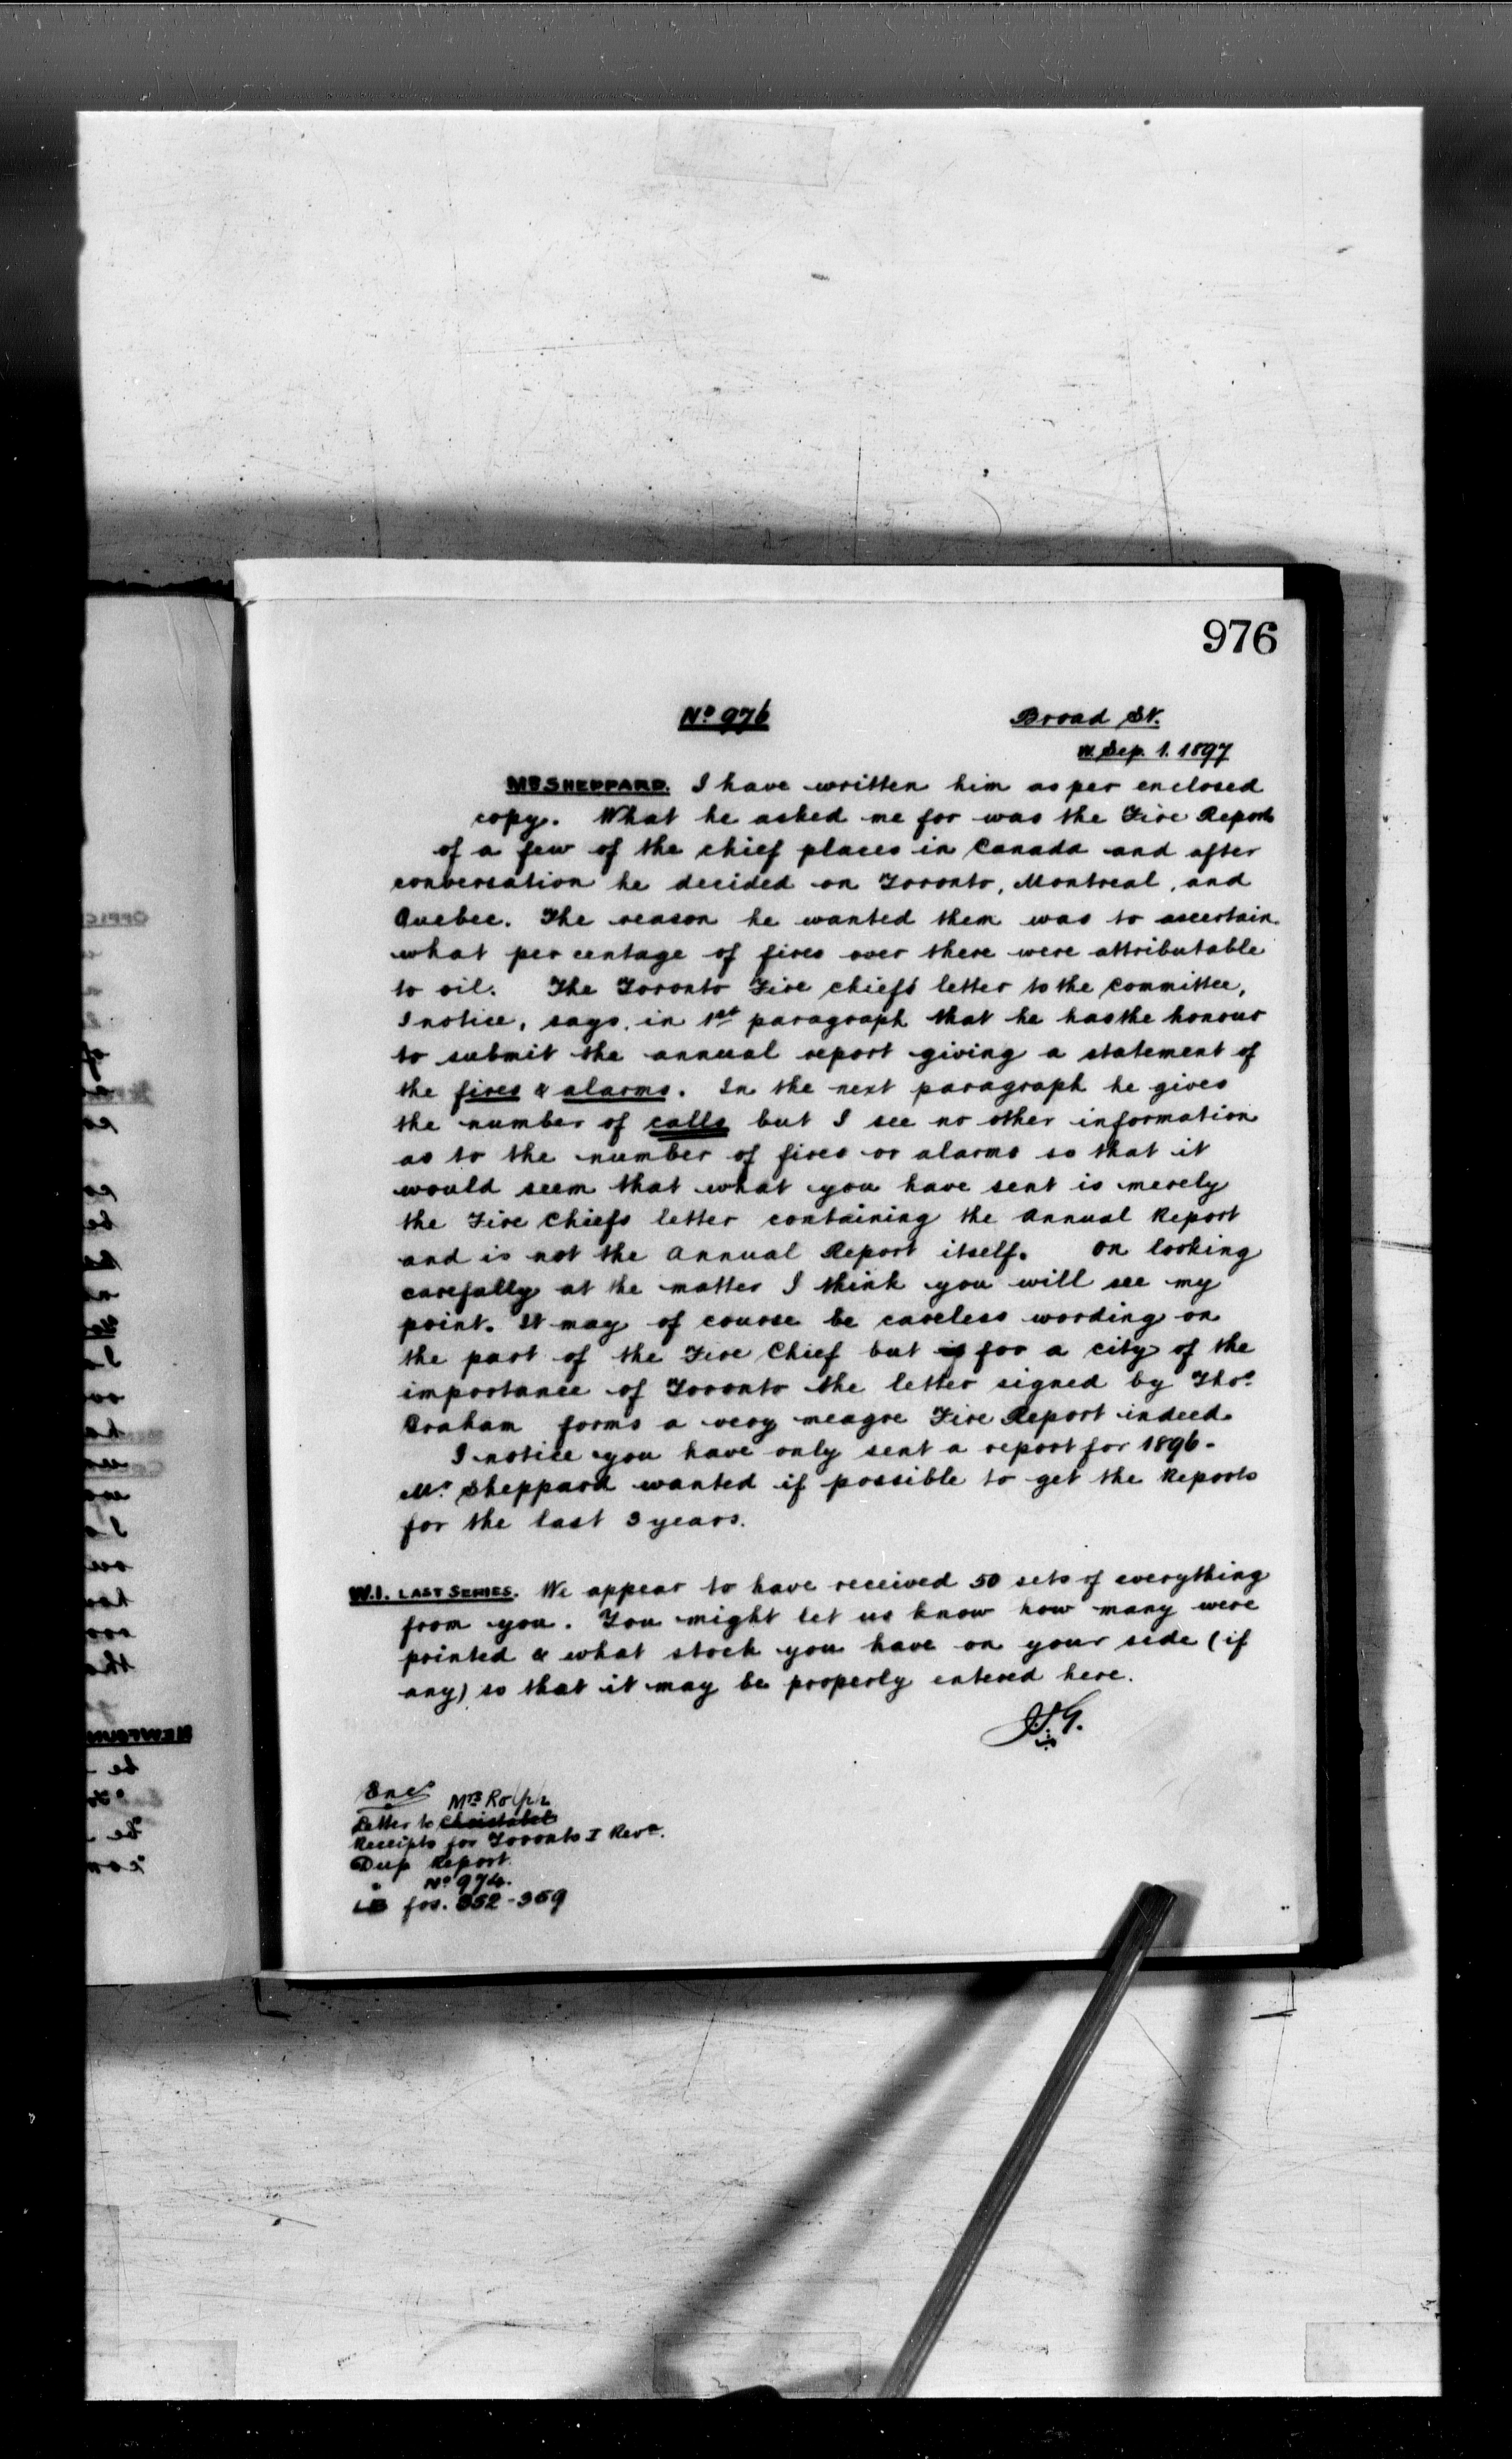 976
No 976
Broad St.
W. Sep. 1. 1897
MR SHEPPARD. I have written him as per enclosed
copy. What he asked me for was the Fire Reports
of a few of the chief places in Canada and after
conversation he decided on Toronto, Montreal, and
Quebec. The reason he wanted them was to ascertain
what per centage of fires over there were attributable
to oil. The Toronto Fire chief's letter to the Committee,
I notice, says, in 1st paragraph that he has the honour
to submit the annual report giving a statement of
the fires & alarms. In the next paragraph he gives
the number of calls but I see no other information
as to the number of fires or alarms so that it
would seem that what you have sent is merely
the Fire Chiefs letter containing the Annual Report
and is not the Annual Report itself. On looking
carefully at the matter I think you will see my
point. It may of course be careless wording on
the part of the Fire Chief but is for a city of the
importance of Toronto the letter signed by Thos.
Graham forms a very meagre Fire Report indeed.
I notice you have only sent a report for 1896.
Mr Sheppard wanted if possible to get the Reports
for the last 3 years.
W.I. LAST SERIES. We appear to have received 50 sets of everything
from you. You might let us know how many were
printed & what stock you have on your side (if
any) so that it may be properly entered here.
Encs
Mrs Rolph
Letter to
Receipts for Toronto I Revn.
Dup Report
" No 974.
LB fos. 352-359